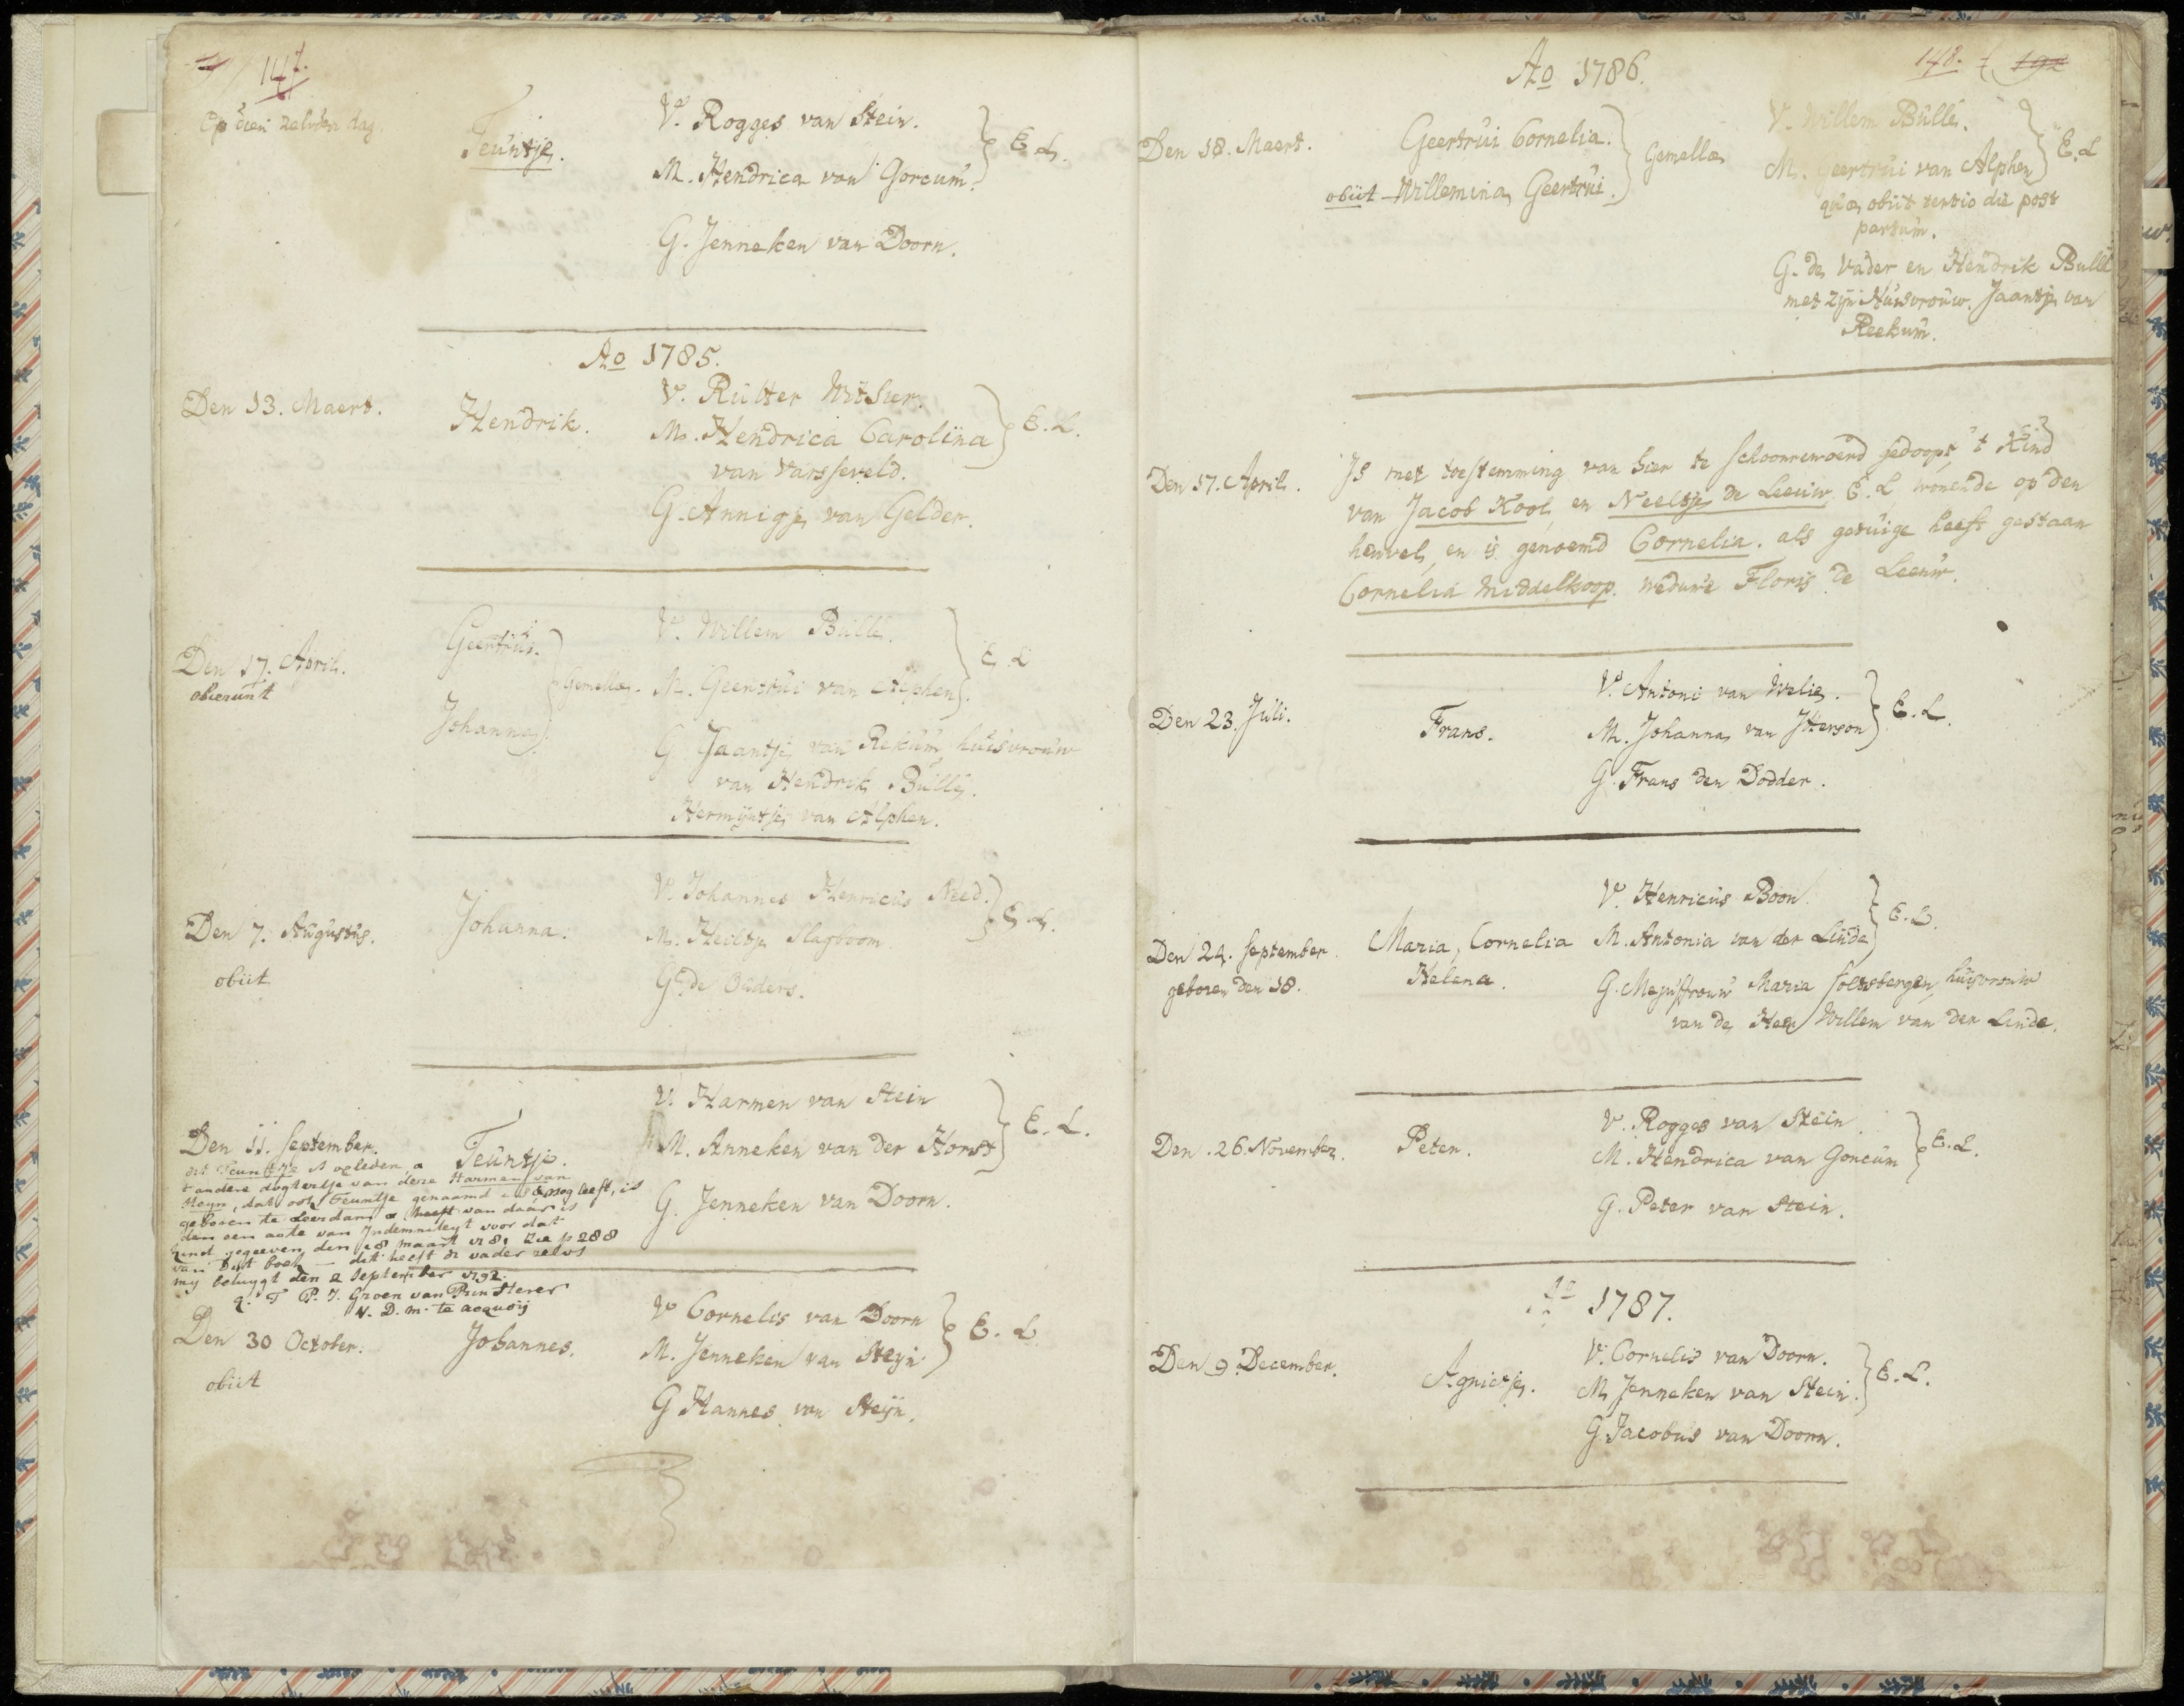 147.
Op dien zelvden dag.
Teuntje.
V. Rogges van Stein.
M. Hendrica van Gorcum.
E. L.
G. Jenneken van Doorn.
Ao 1785.
Den 13. Maert.
Hendrik.
V. Rutter Witsier.
M. Hendrica Carolina
van Varsseveld.
E. L.
G. Annigje van Gelder.
Den 17. April.
obierunt
Geertrui.
Johanna.
Gemellae.
V. Willem Bulle.
M. Geertrui van Alphen.
E. L
G Jaantje van Rekum, huisvrouw
van Hendrik Bulle.
Hermijntje van Alphen.
Den 7. Augustus.
obiit
Johanna.
V. Johannes Henricus Need.
M. Heiltje Slagboom.
E. L.
G. de Ouders.
Den 11. September.
Teuntje.
V. Harmen van Stein
M. Anneken van der Horst
E. L.
G. Jenneken van Doorn.
dit Teuntje is overleden, a
t andere dogtertje van deze Harmen van
Steyn, dat ook Teuntje genaamd is & nog leeft, is
geboren te Leerdam & heeft van daar is
dan een acte van Indemniteyt voor dat
kind gegeeven den 28 maart 1781 zie p 288
van dit boek — dit heeft de vader zelvs
my betuygt den 2 September 1792.
q. T P. J. Groen van Prinsterer
V. D. m. te acquoij
Den 30 October.
obiit
Johannes.
V Cornelis van Doorn
M. Jenneken van Steyn
E. L
G Hannes van Steyn.
Ao 1786.
148.
192
Den 18. Maert.
Geertrui Cornelia.
obiit Willemina Geertrui.
Gemellae
V. Willem Bulle.
M. Geertrui van Alphen
E. L
quae obiit tertio die post
partum.
G. de Vader en Hendrik Bulle
met zijn Huisvrouw. Jaantje van
Reekum.
Den 17. April.
Is met toestemming van hier te Schoonrewoerd gedoopt, 't Kind
van Jacob Kool, en Neeltje de Leeuw, E. L wonende op den
heuvel, en is genoemd Cornelia. als getuige heeft gestaan
Cornelia Middelkoop. weduwe Floris de Leeuw.
Den 23. Juli.
Frans.
V. Antoni van Welie.
M. Johanna van Itterson
E. L.
G. Frans den Dodder.
Den 24. September.
geboren den 18.
Maria, Cornelia
Helena.
V. Henricus Boon.
M. Antonia van der Linde
E. L.
G. Mejuffrouw Maria huisvrouw
van de Heer Willem van der Linde.
Den 26. November.
Peter.
V. Rogges van Stein.
M. Hendrica van Goncum
E. L.
G. Peter van Stein.
Ao 1787.
Den 9. December.
Agnietje.
V. Cornelis van Doorn.
M. Jenneken van Stein.
E. L.
G. Jacobus van Doorn.